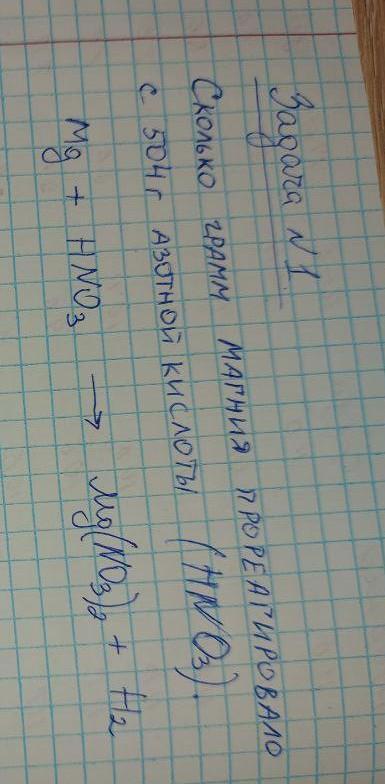 Задача N 1
Сколько грамм магния прореагировало
с 504 г азотной кислоты (HNO₃).
Mg + HNO₃ → Mg(NO₃)₂ + H₂